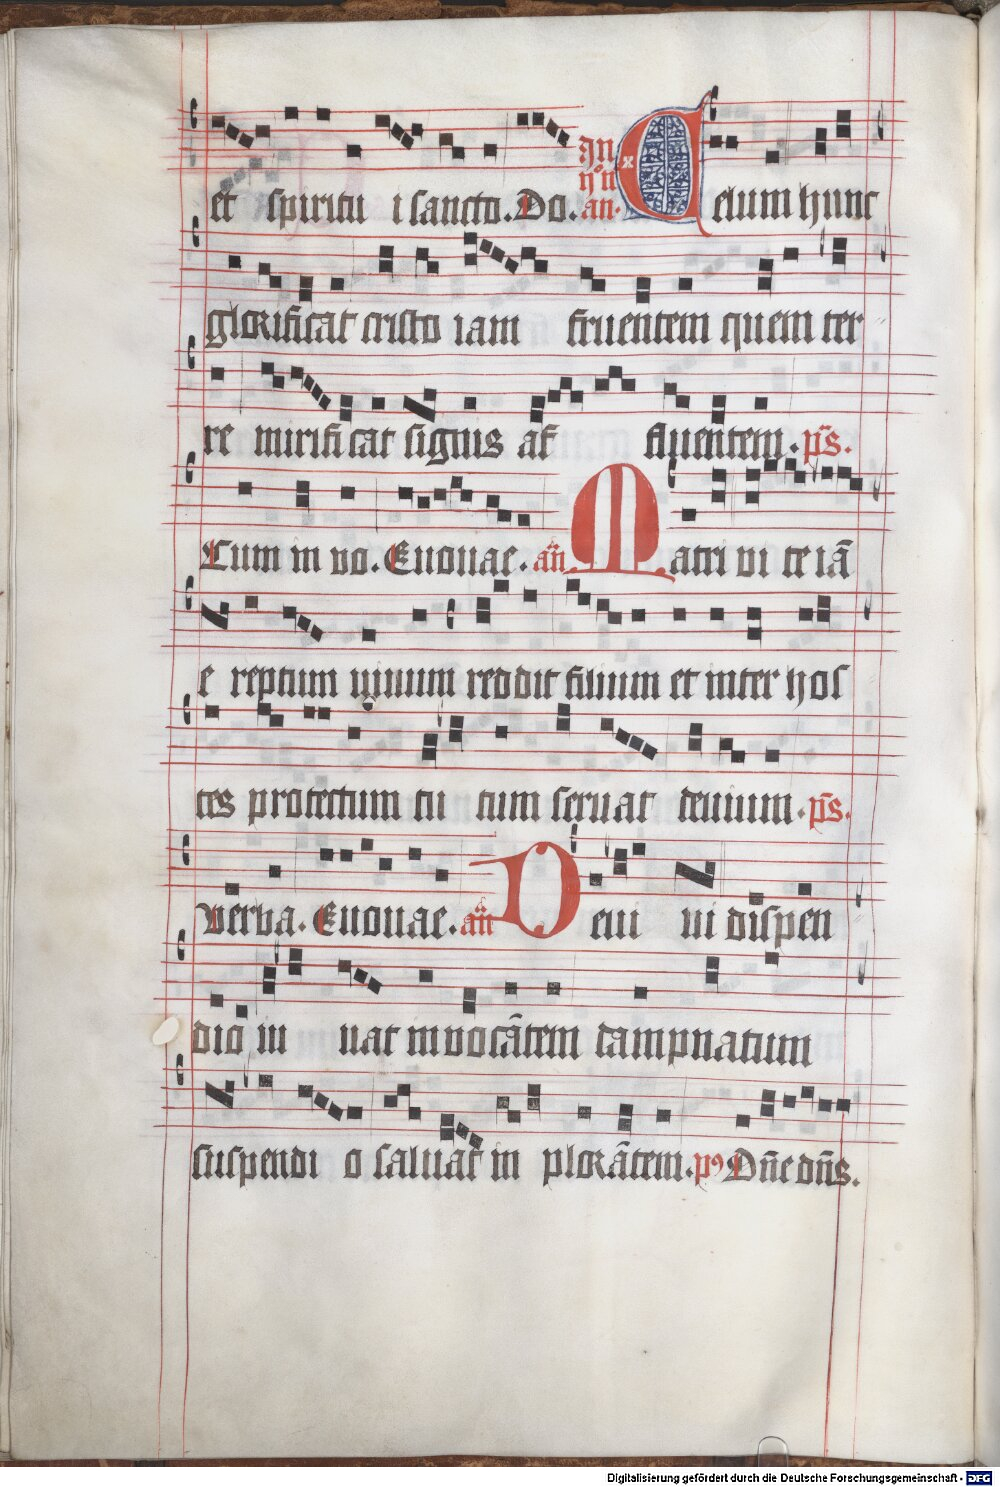 et spiritu i sancto. Do. an. Celum hunc
glorificat cristo iam fruentem quem ter
re mirificat signis af fluentem. ps.
Cum in vo. Euouae. añ Matri vi te iā
e reptum viuum reddit filium et inter hos
tes protectum tu tum seruat deuium. ps.
Verba. Euouae. añ Deui ui dispen
dio in uat inuocātem dampnatum
suspendi o saluat in plorātem. ps Dñe dñs.
Digitalisierung gefördert durch die Deutsche Forschungsgemeinschaft - DFG